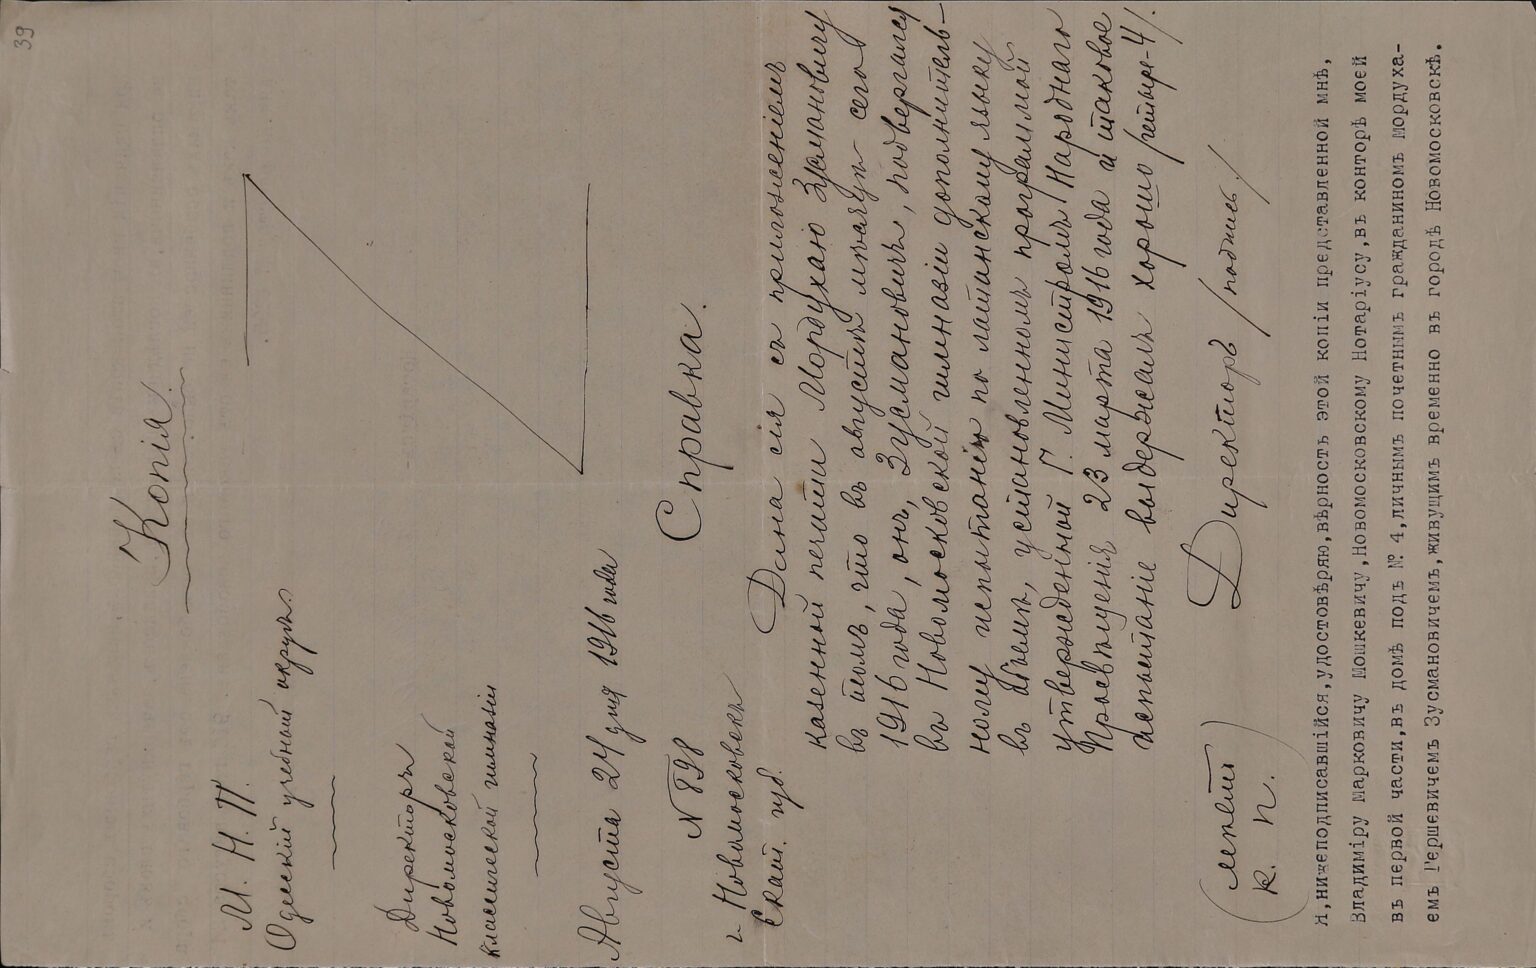 39
Копія
М. Н. П.
Одесскій учебный округъ
Директоръ
Новомосковской
классической гимназіи
Августа 24 дня 1916 года
№ 898
г. Новомосковскъ
Екат. губ.
Справка.
Дана сія съ приложеніемъ
казенной печати Мордухаю Зусмановичу
въ томъ, что въ августѣ мѣсяцѣ сего
1916 года, онъ, Зусмановичъ, подвергался
въ Новомосковской гимназіи дополнитель-
ному испытанію по латинскому языку
въ объемѣ, установленномъ программой
утвержденной Г. Министромъ Народнаго
Просвѣщенія 23 марта 1916 года и таковое
испытаніе выдержалъ хорошо /четыре-4/.
Директоръ /подпись/
(мѣсто
к. п.)
Я,нижеподписавшійся,удостовѣряю,вѣрность этой копіи представленной мнѣ,
Владиміру Марковичу Мошкевичу,Новомосковскому Нотаріусу,въ конторѣ моей
въ первой части,въ домѣ подъ № 4,личнымъ почетнымъ гражданиномъ Мордуха-
емъ Гершевичемъ Зусмановичемъ,живущимъ временно въ городѣ Новомосковскѣ.